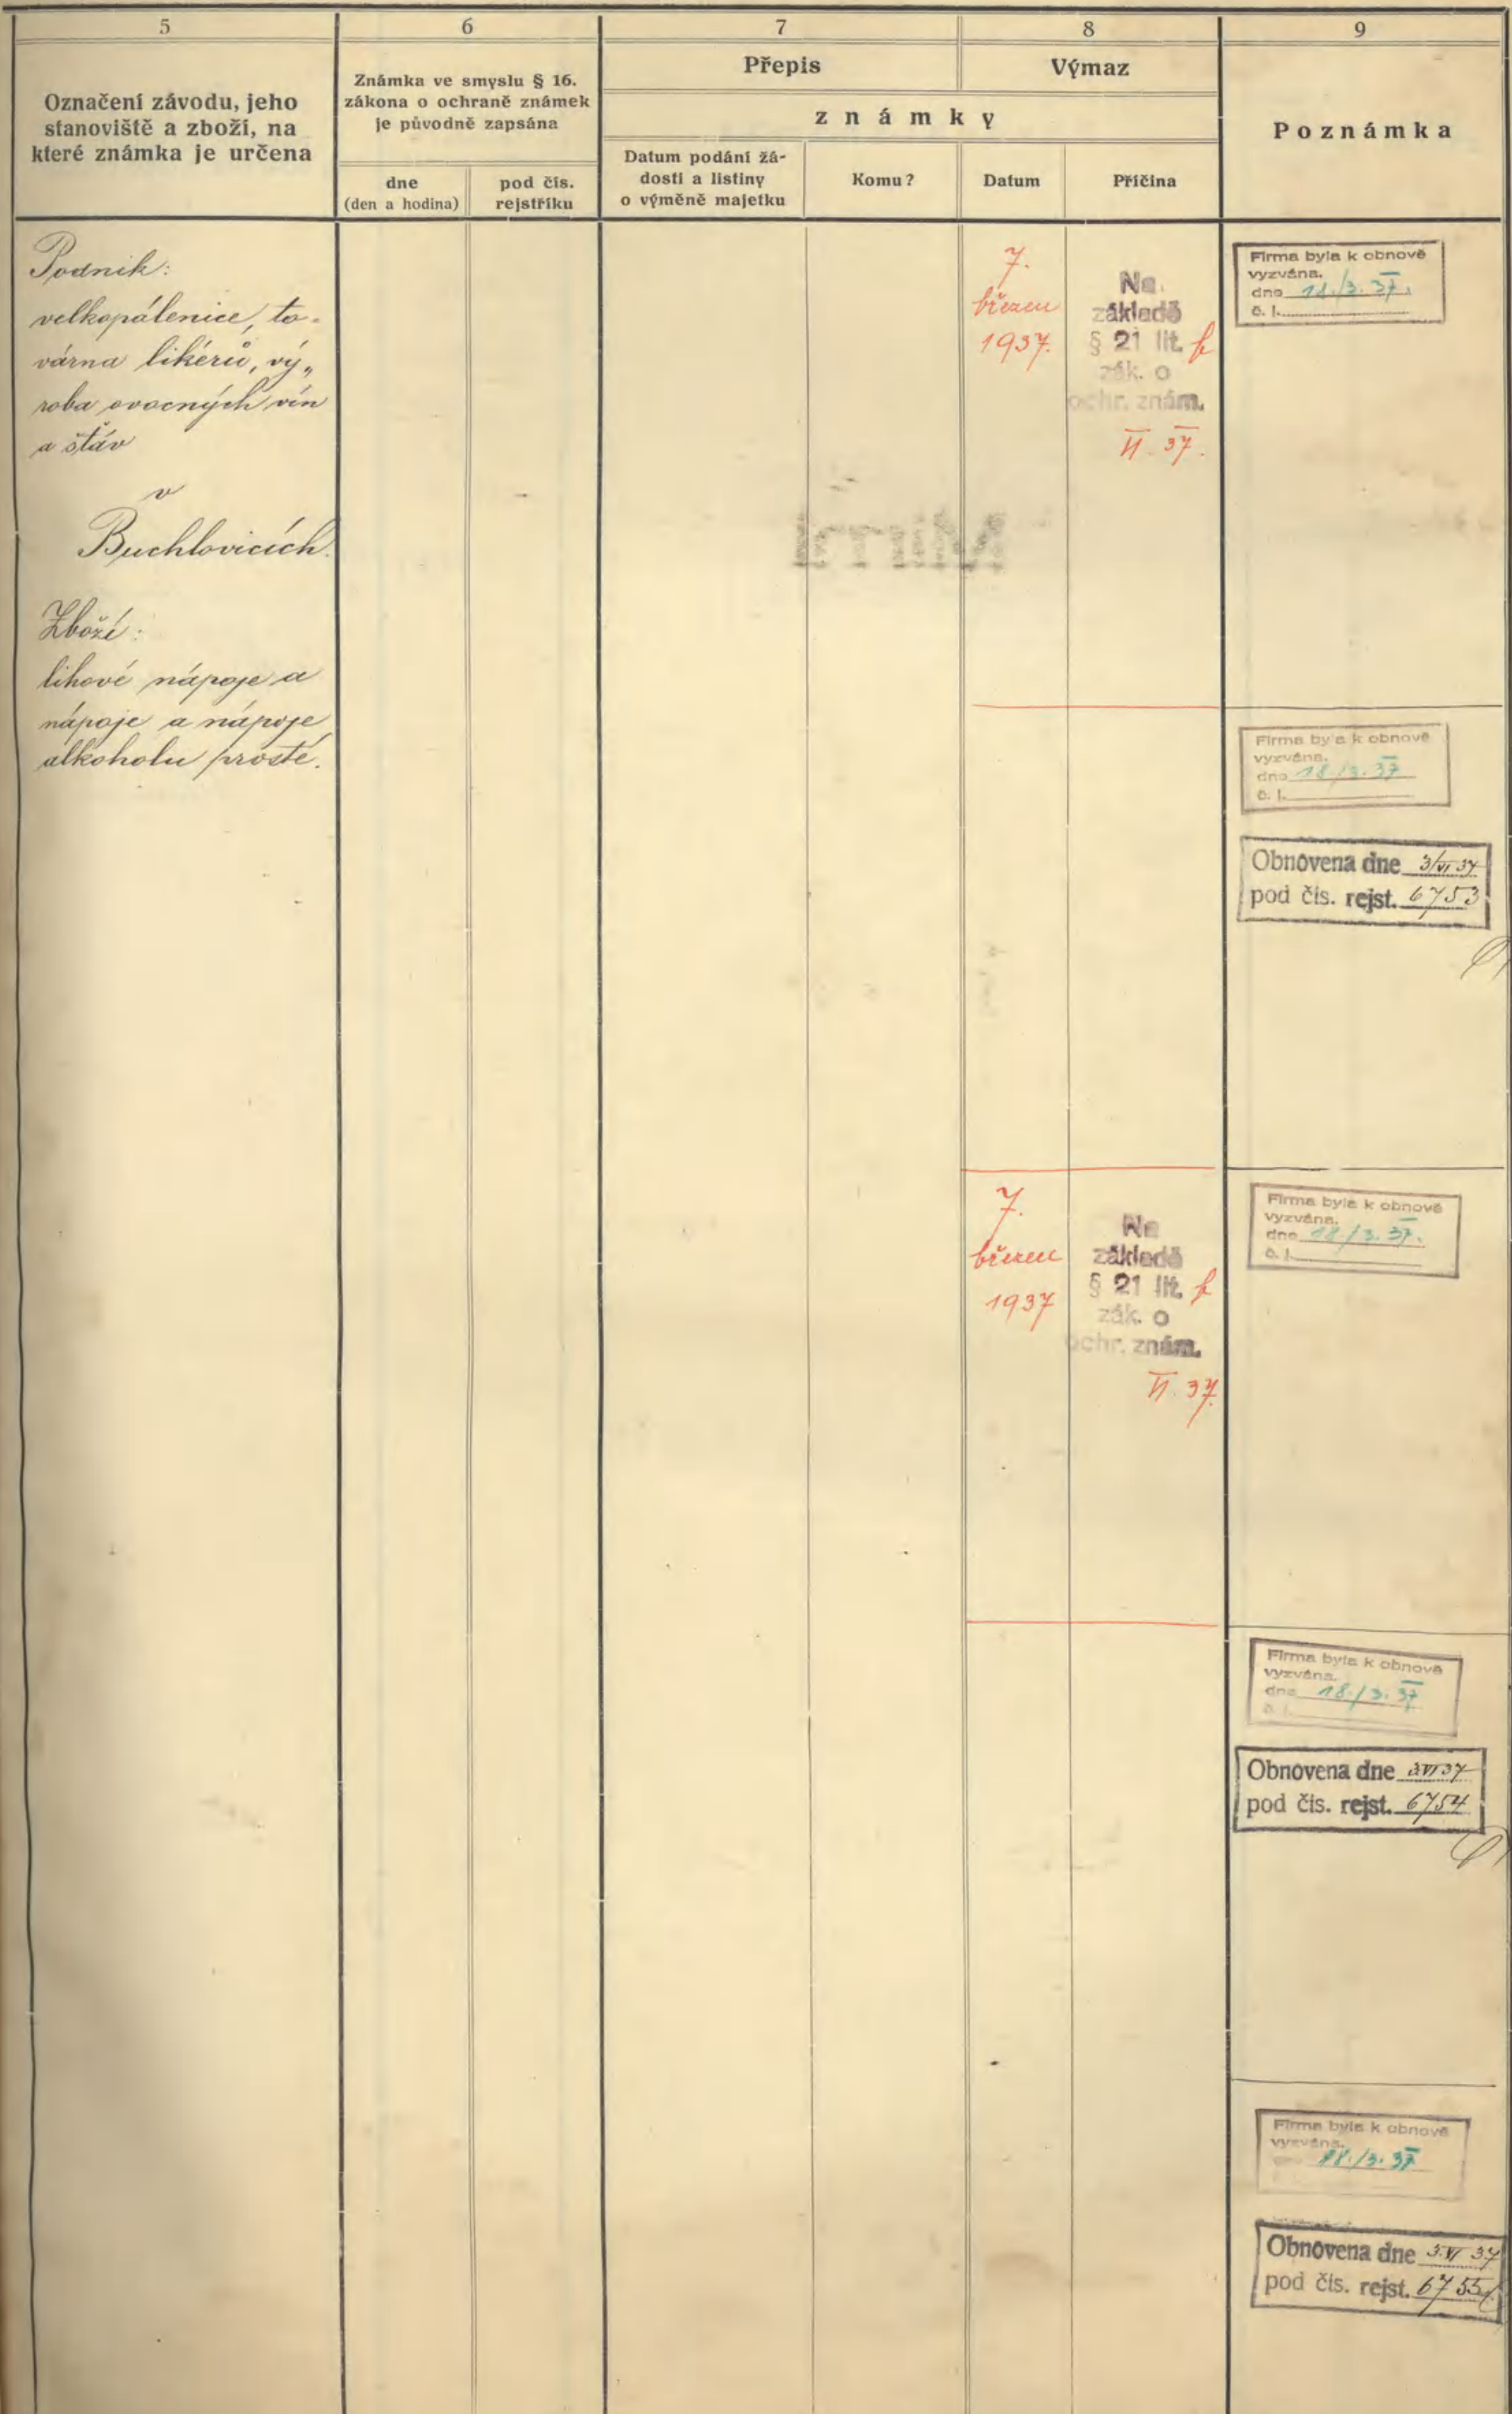 5
6
7
8
9
Označení závodu, jeho
stanoviště a zboží, na
které známka je určena
Známka ve smyslu § 16.
zákona o ochraně známek
je původně zapsána
dne
(den a hodina)
pod čís.
rejstříku
Přepis
Výmaz
známky
Datum podání žá-
dosti a listiny
o výměně majetku
Komu?
Datum
Příčina
Poznámka
Podnik:
velkopálenice, to-
várna likérů, vý„
roba ovocných vín
a šťáv
v
Buchlovicích.
Zboží:
lihové nápoje a
nápoje a nápoje
alkoholu prosté.
7.
březen
1937.
Na
základě
§ 21 lit. b
zák. o
ochr. znám.
VI. 37.
Firma byla k obnově
vyzvána.
dne 18./3. 37.
č. j.
Firma byla k obnově
vyzvána.
dne 18./3. 37
č. j.
Obnovena dne 3/VI 37
pod čís. rejst. 6753
7.
březen
1937
Na
základě
§ 21 lit. b
zák. o
ochr. znám.
VI. 37.
Firma byla k obnově
vyzvána.
dne 18./3. 37.
č. j.
Firma byla k obnově
vyzvána.
dne 18./3. 37
č. j.
Obnovena dne 3.VI 37
pod čís. rejst. 6754
Firma byla k obnově
vyzvána.
18./3. 37
Obnovena dne 3.VI 37
pod čís. rejst. 6755